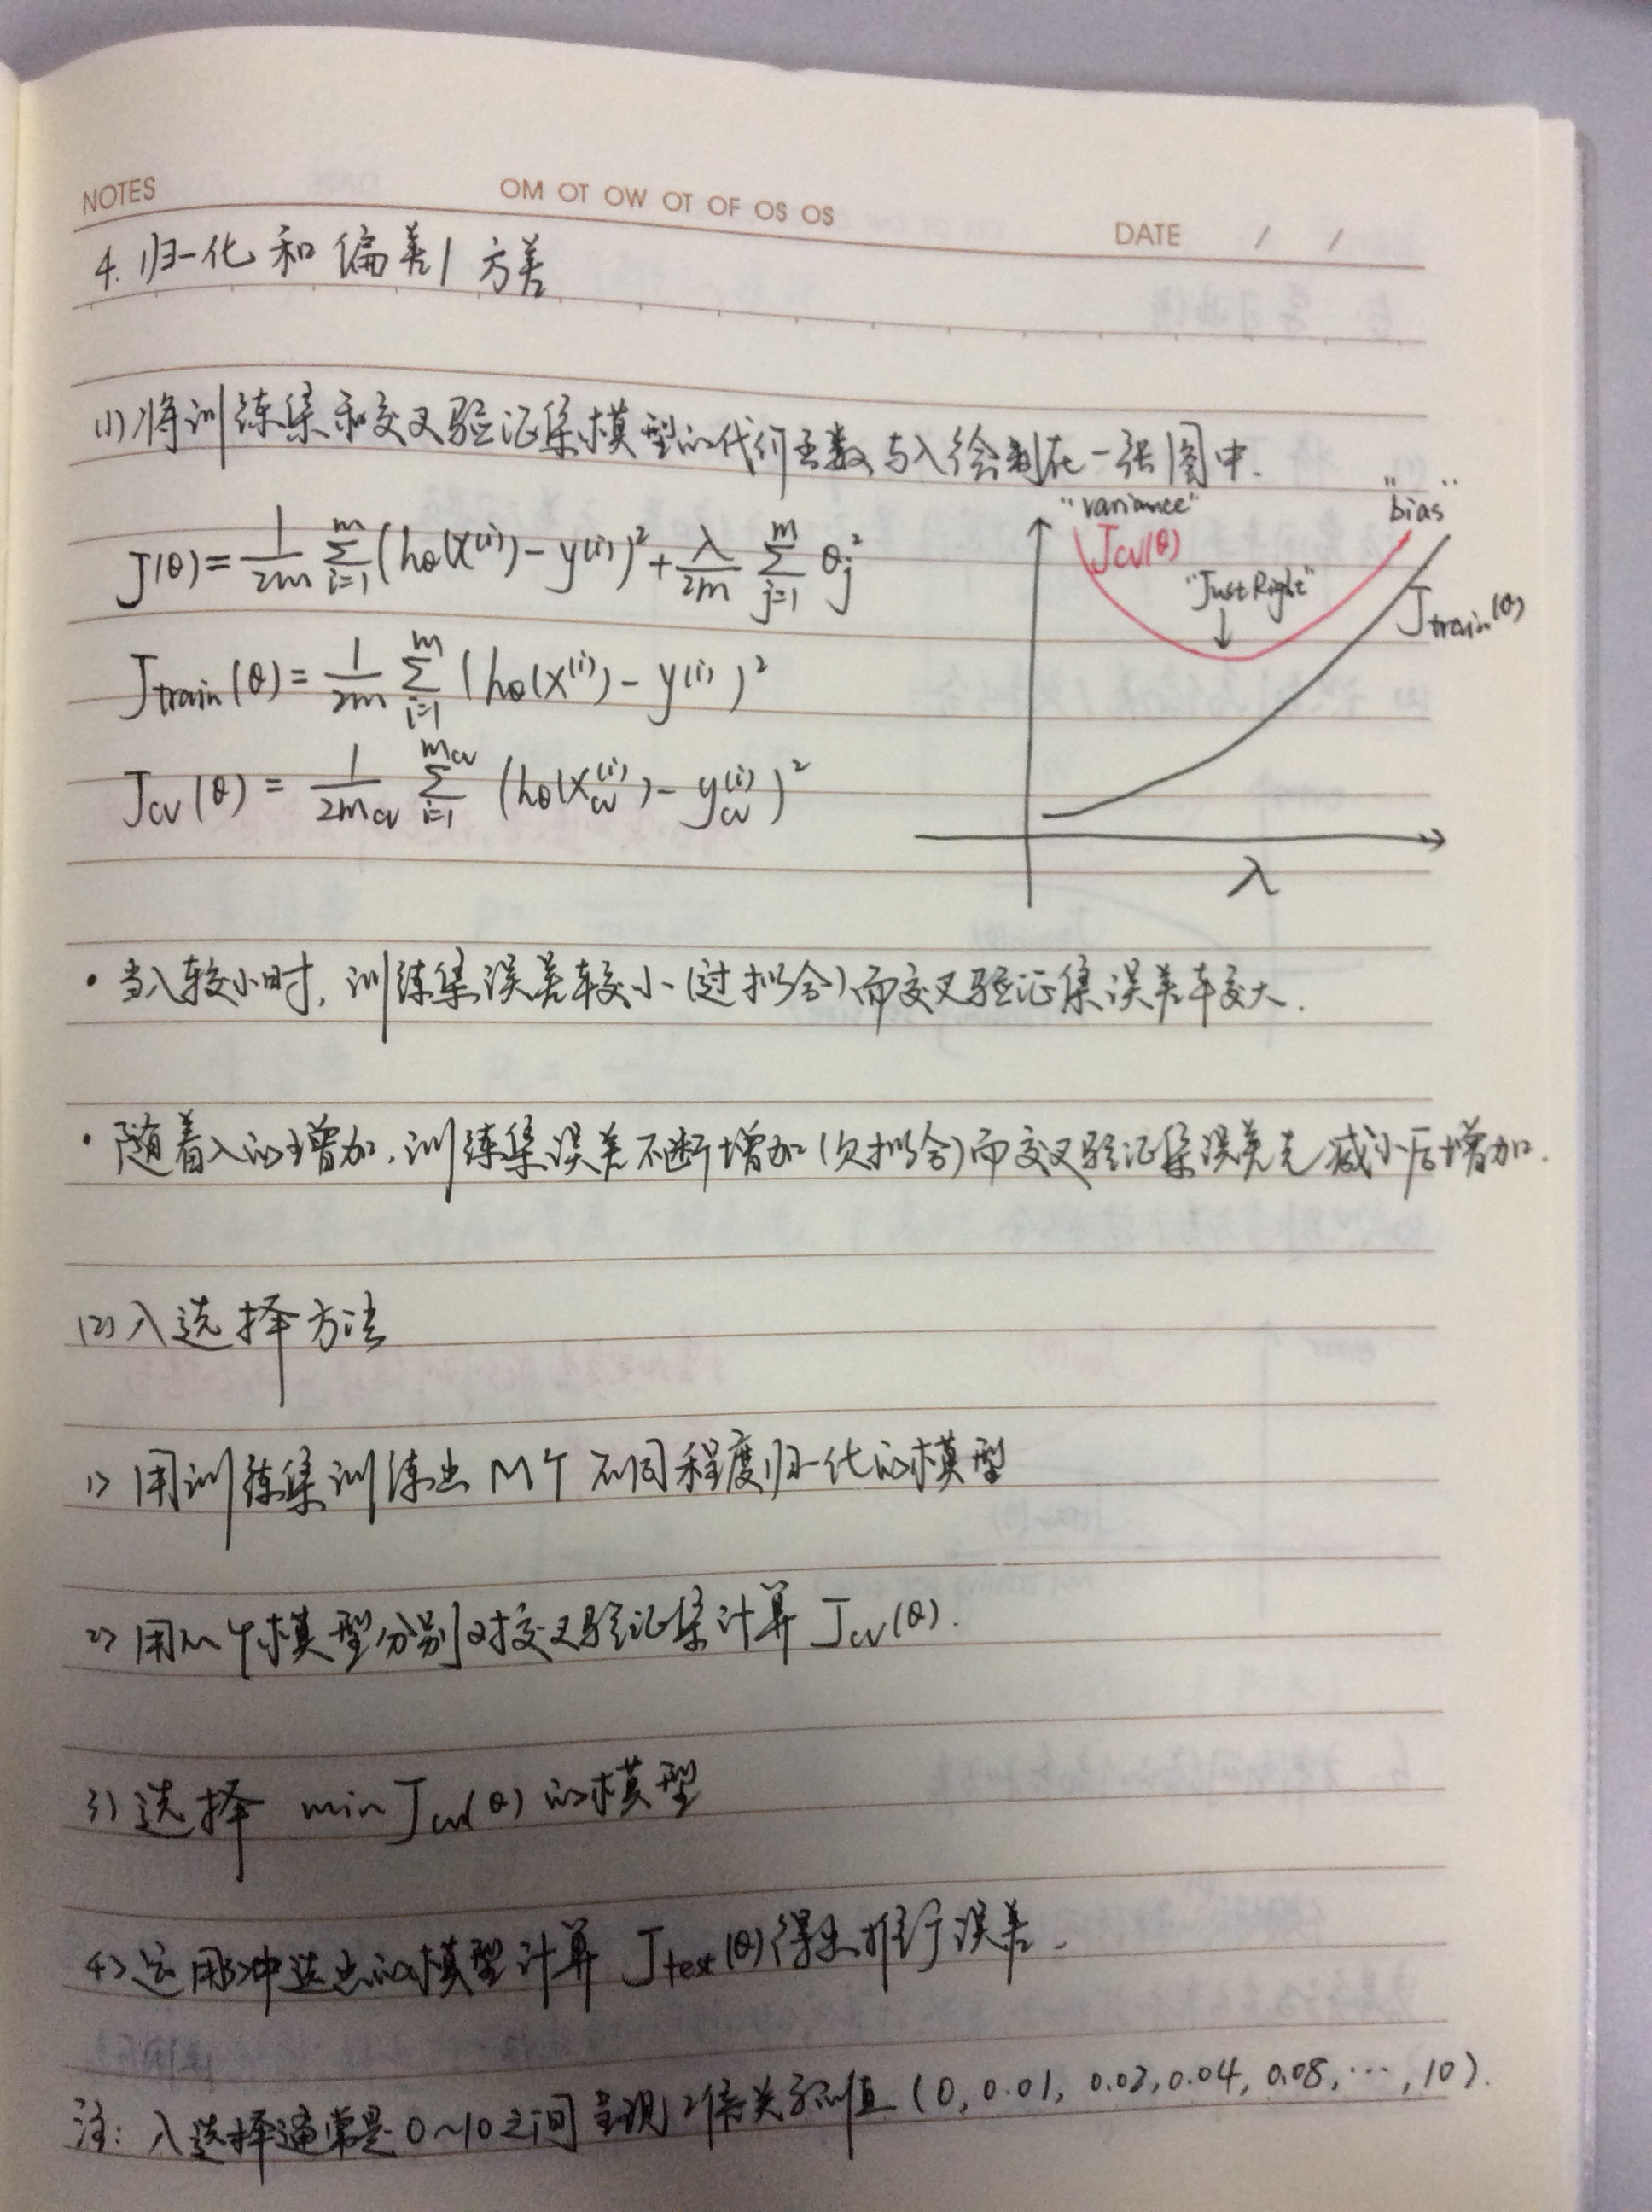 NOTES OM OT OW OT OF OS OS DATE / /
4. 归一化和偏差/方差
(1) 将训练集和交叉验证集模型的代价函数与λ绘制在一张图中.
J(θ) = 1/2m Σ_{i=1}^{m} (hθ(x^(i)) - y^(i))² + λ/2m Σ_{j=1}^{m} θ_j²
J_train(θ) = 1/2m Σ_{i=1}^{m} (hθ(x^(i)) - y^(i))²
J_cv(θ) = 1/2m_cv Σ_{i=1}^{m_cv} (hθ(x_cv^(i)) - y_cv^(i))²
"variance"
"bias"
J_cv(θ)
"Just Right"
J_train(θ)
λ
• 当λ较小时, 训练集误差较小(过拟合)而交叉验证集误差较大.
• 随着λ的增加, 训练集误差不断增加(欠拟合)而交叉验证集误差先减小后增加.
(2) λ选择方法
1> 用训练集训练出 M个 不同程度归一化的模型
2> 用M个模型分别对交叉验证集计算 J_cv(θ).
3) 选择 min J_cv(θ) 的模型
4> 运用3>中选出的模型计算 J_test(θ)得出推行误差.
注: λ选择通常是 0~10之间呈现2倍关系的值 (0, 0.01, 0.02, 0.04, 0.08, ..., 10).